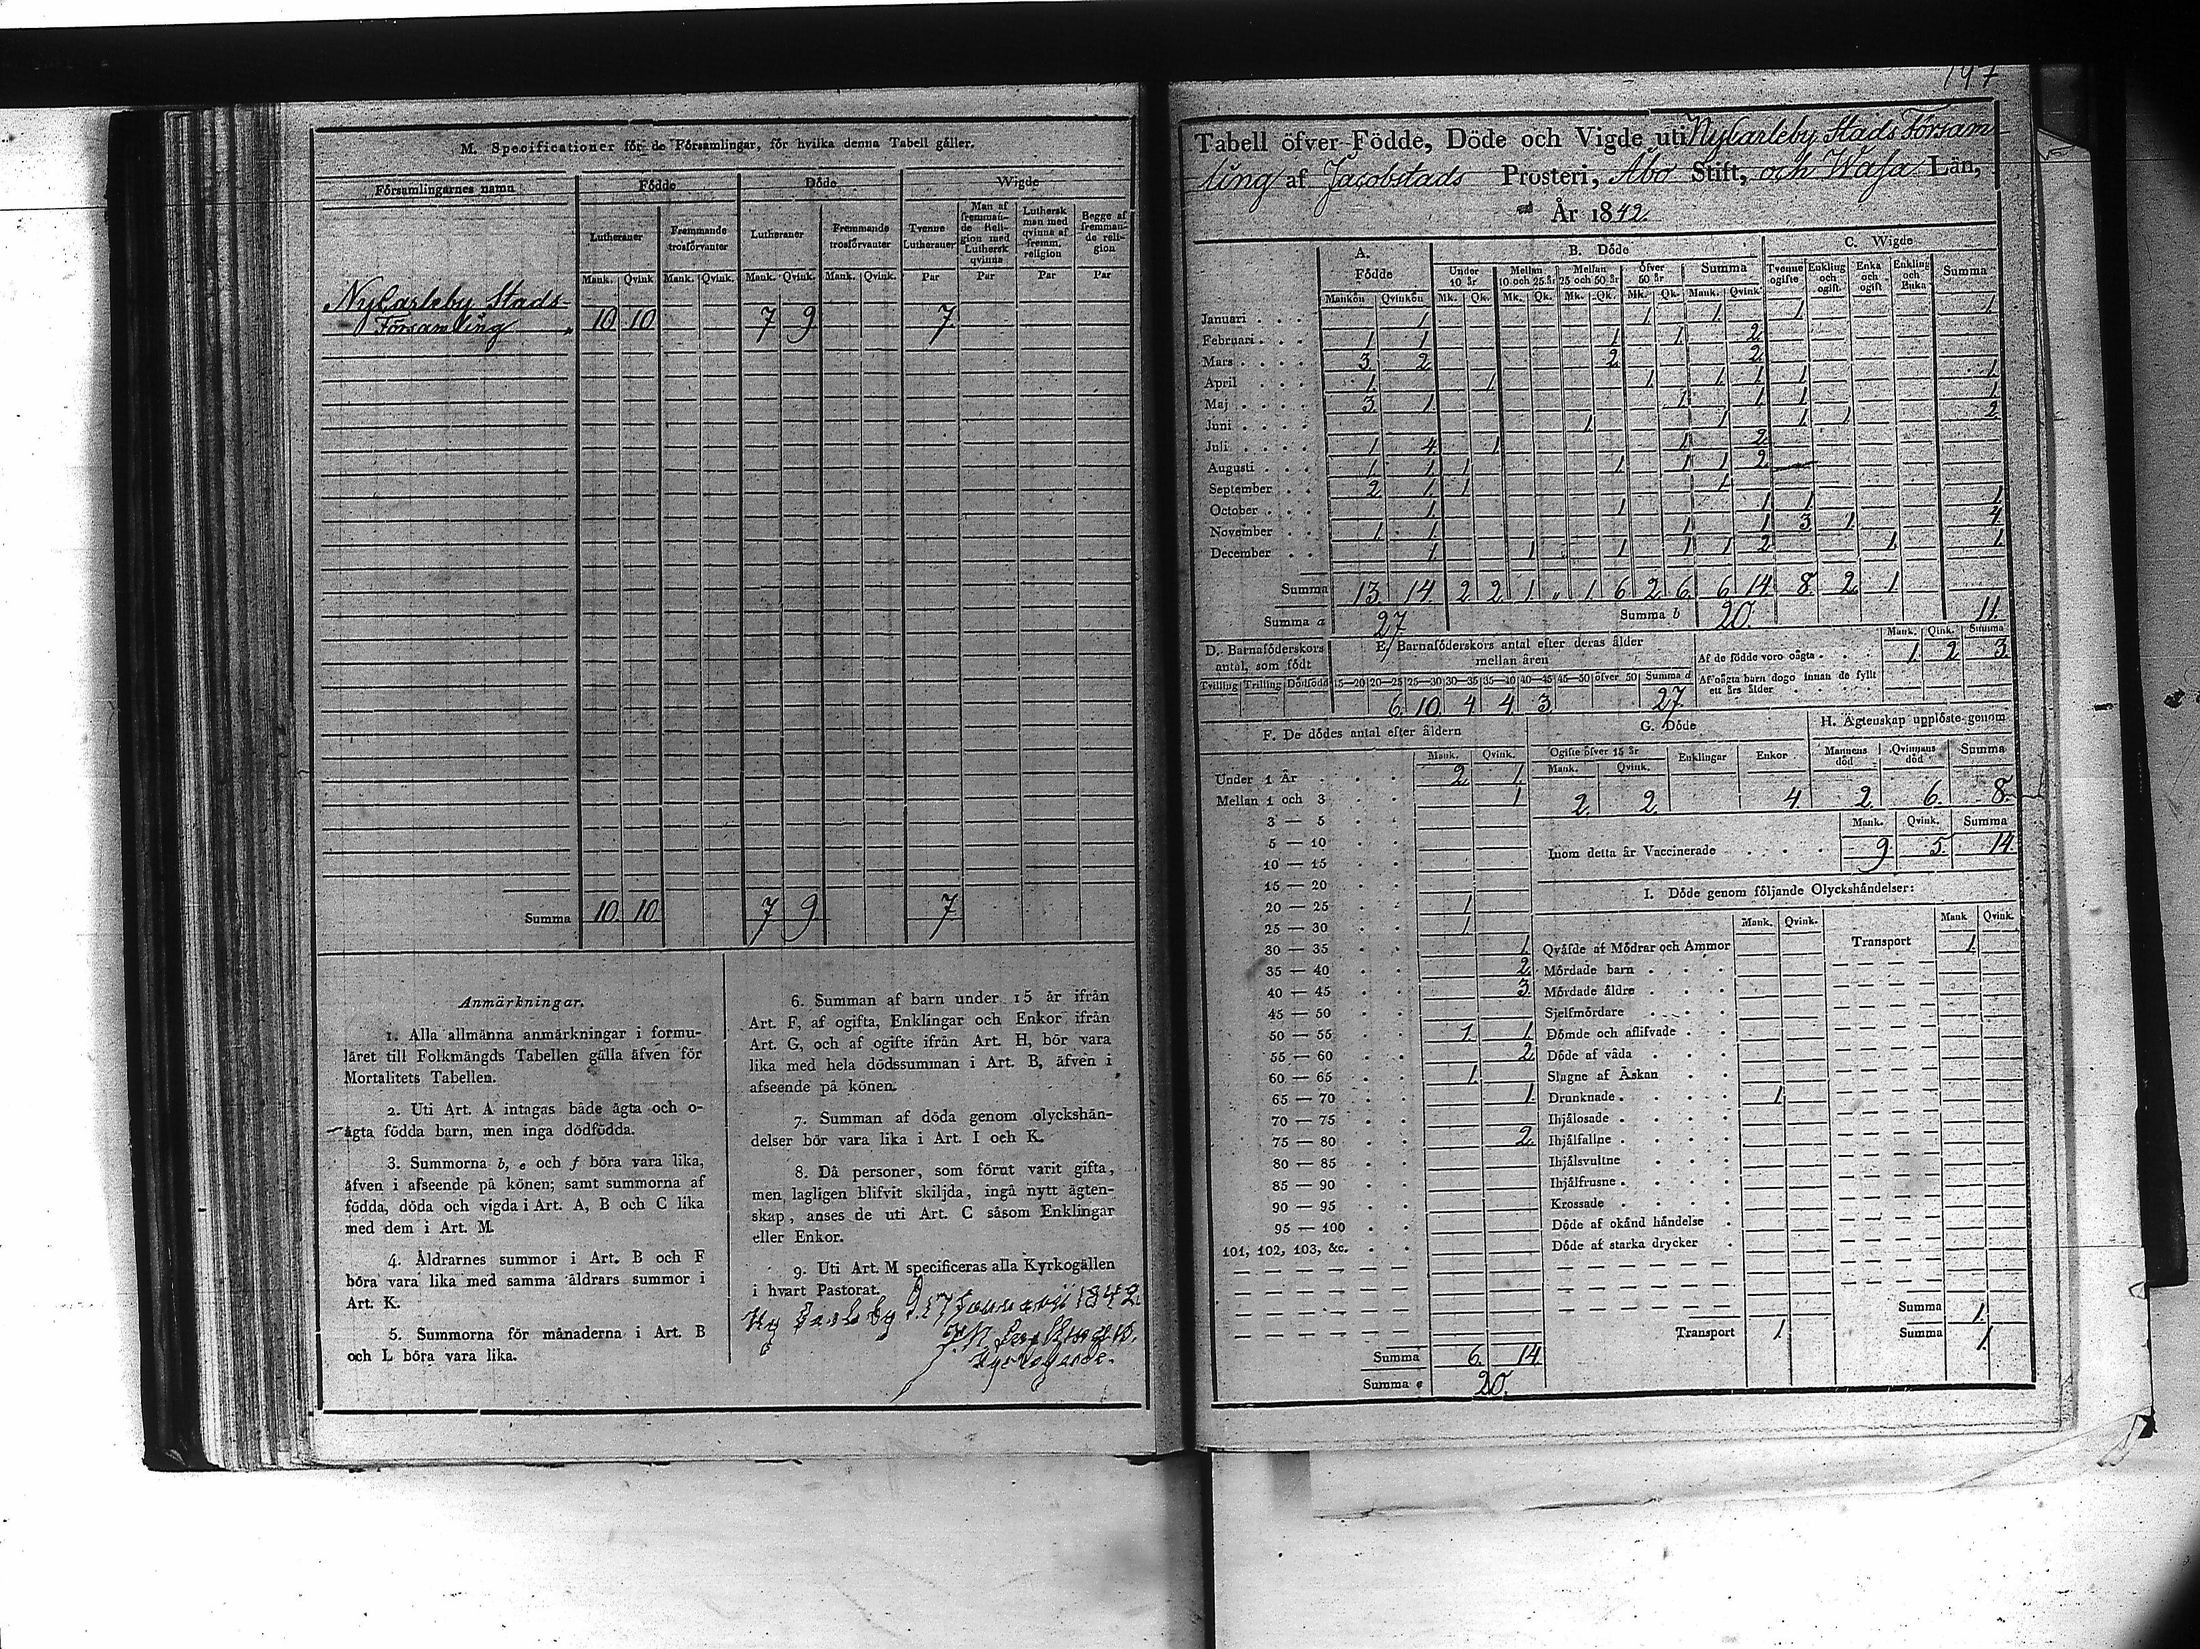 M. Specificationer för de Församlingar, för hvilka denna Tabell gäller.
Församlingarnes namn Födde Döde Wigde
Lutheraner Fremmande trosförvanter Lutheraner Fremmande trosförvanter Tvenne Lutheraner Man af fremmande Religion med Luthersk qvinna Luthersk man med qvinna af fremm. religion Begge af fremmande religion
Mank. Qvink. Mank. Qvink. Mank. Qvink. Mank. Qvink. Par Par Par Par
NyCarleby Stads
Församling 10 10 7 9 7
Summa 10 10 7 9 7
Anmärkningar.
1. Alla allmänna anmärkningar i formu-
läret till Folkmängds Tabellen gälla äfven för
Mortalitets Tabellen.
2. Uti Art. A intagas både ägta och o-
ägta födda barn, men inga dödfödda.
3. Summorna b, e och f böra vara lika,
äfven i afseende på könen; samt summorna af
födda, döda och vigda i Art. A, B och C lika
med dem i Art. M.
4. Åldrarnes summor i Art. B och F
böra vara lika med samma åldrars summor i
Art. K.
5. Summorna för månaderna i Art. B
och L böra vara lika.
6. Summan af barn under 15 år ifrån
Art. F, af ogifta, Enklingar och Enkor ifrån
Art. G, och af ogifte ifrån Art. H, bör vara
lika med hela dödssumman i Art. B, äfven i
afseende på könen.
7. Summan af döda genom olyckshän-
delser bör vara lika i Art. I och K.
8. Då personer, som förut varit gifta,
men lagligen blifvit skiljda, ingå nytt ägten-
skap, anses de uti Art. C såsom Enklingar
eller Enkor.
9. Uti Art. M specificeras alla Kyrkogällen
i hvart Pastorat.
Ny Carleby d. 17 Januarii 1842
Kyrkoherde.
197
Tabell öfver Födde, Döde och Vigde uti NyCarleby Stads Försam-
ling af Jacobstads Prosteri, Åbo Stift, och Wasa Län,
År 1842.
A. Födde B. Döde C. Wigde
Under 10 år Mellan 10 och 25 år Mellan 25 och 50 år Öfver 50 år Summa Tvenne ogifte Enkling och ogift. Enka och ogift Enkling och Enka Summa
Mankön Qvinkön Mk. Qk. Mk. Qk. Mk. Qk. Mk. Qk. Mank. Qvink.
Januari 1 1 1 1 1
Februari 1 1 1 1 2
Mars 3 2 2 2
April 1 1 1 1 1 1 1
Maj 3 1 1 1 1 1
Juni 1 1 1 1 2
Juli 1 4 1 1 2
Augusti 1 1 1 1 1 1 2
September 2 1 1 1
October 1 1 1 1 1
November 1 1 1 1 3 1 4
December 1 1 1 1 1 2 1 1
Summa 13 14 2 2 1 " 1 6 2 6 6 14 8 2 1
Summa a 27 Summa b 20 11
D. Barnaföderskors antal, som födt
Tvilling Trilling Dödfödd
E. Barnaföderskors antal efter deras ålder
mellan åren
15—20 20—25 25—30 30—35 35—40 40—45 45—50 öfver 50 Summa d
6 10 4 4 3 27
Mank. Qink. Summa
Af de födde voro oägta 1 2 3
Af oägta barn dogo innan de fyllt
ett års ålder
F. De dödes antal efter åldern
Mank. Qvink.
Under 1 År 2 1
Mellan 1 och 3 1
3 — 5
5 — 10
10 — 15
15 — 20
20 — 25 1
25 — 30 1
30 — 35 1
35 — 40 2
40 — 45 3
45 — 50
50 — 55 1 1
55 — 60 2
60 — 65 1
65 — 70 1
70 — 75
75 — 80 2
80 — 85
85 — 90
90 — 95
95 — 100
101, 102, 103, &c.
Summa 6 14
Summa e 20
G. Döde
Ogifte öfver 15 år Enklingar Enkor
Mank. Qvink.
2 2 4
H. Ägtenskap upplöste genom
Mannens död Qvinnans död Summa
2 6 8
Mank. Qvink. Summa
Inom detta år Vaccinerade 9 5 14
I. Döde genom följande Olyckshändelser:
Mank. Qvink. Mank. Qvink.
Qväfde af Mödrar och Ammor Transport 1
Mördade barn
Mördade äldre
Sjelfmördare
Dömde och aflifvade
Döde af våda
Slagne af Åskan
Drunknade 1
Ihjälosade
Ihjälfallne
Ihjälsvultne
Ihjälfrusne
Krossade
Döde af okänd händelse
Döde af starka drycker
Summa 1
Transport 1 Summa 1